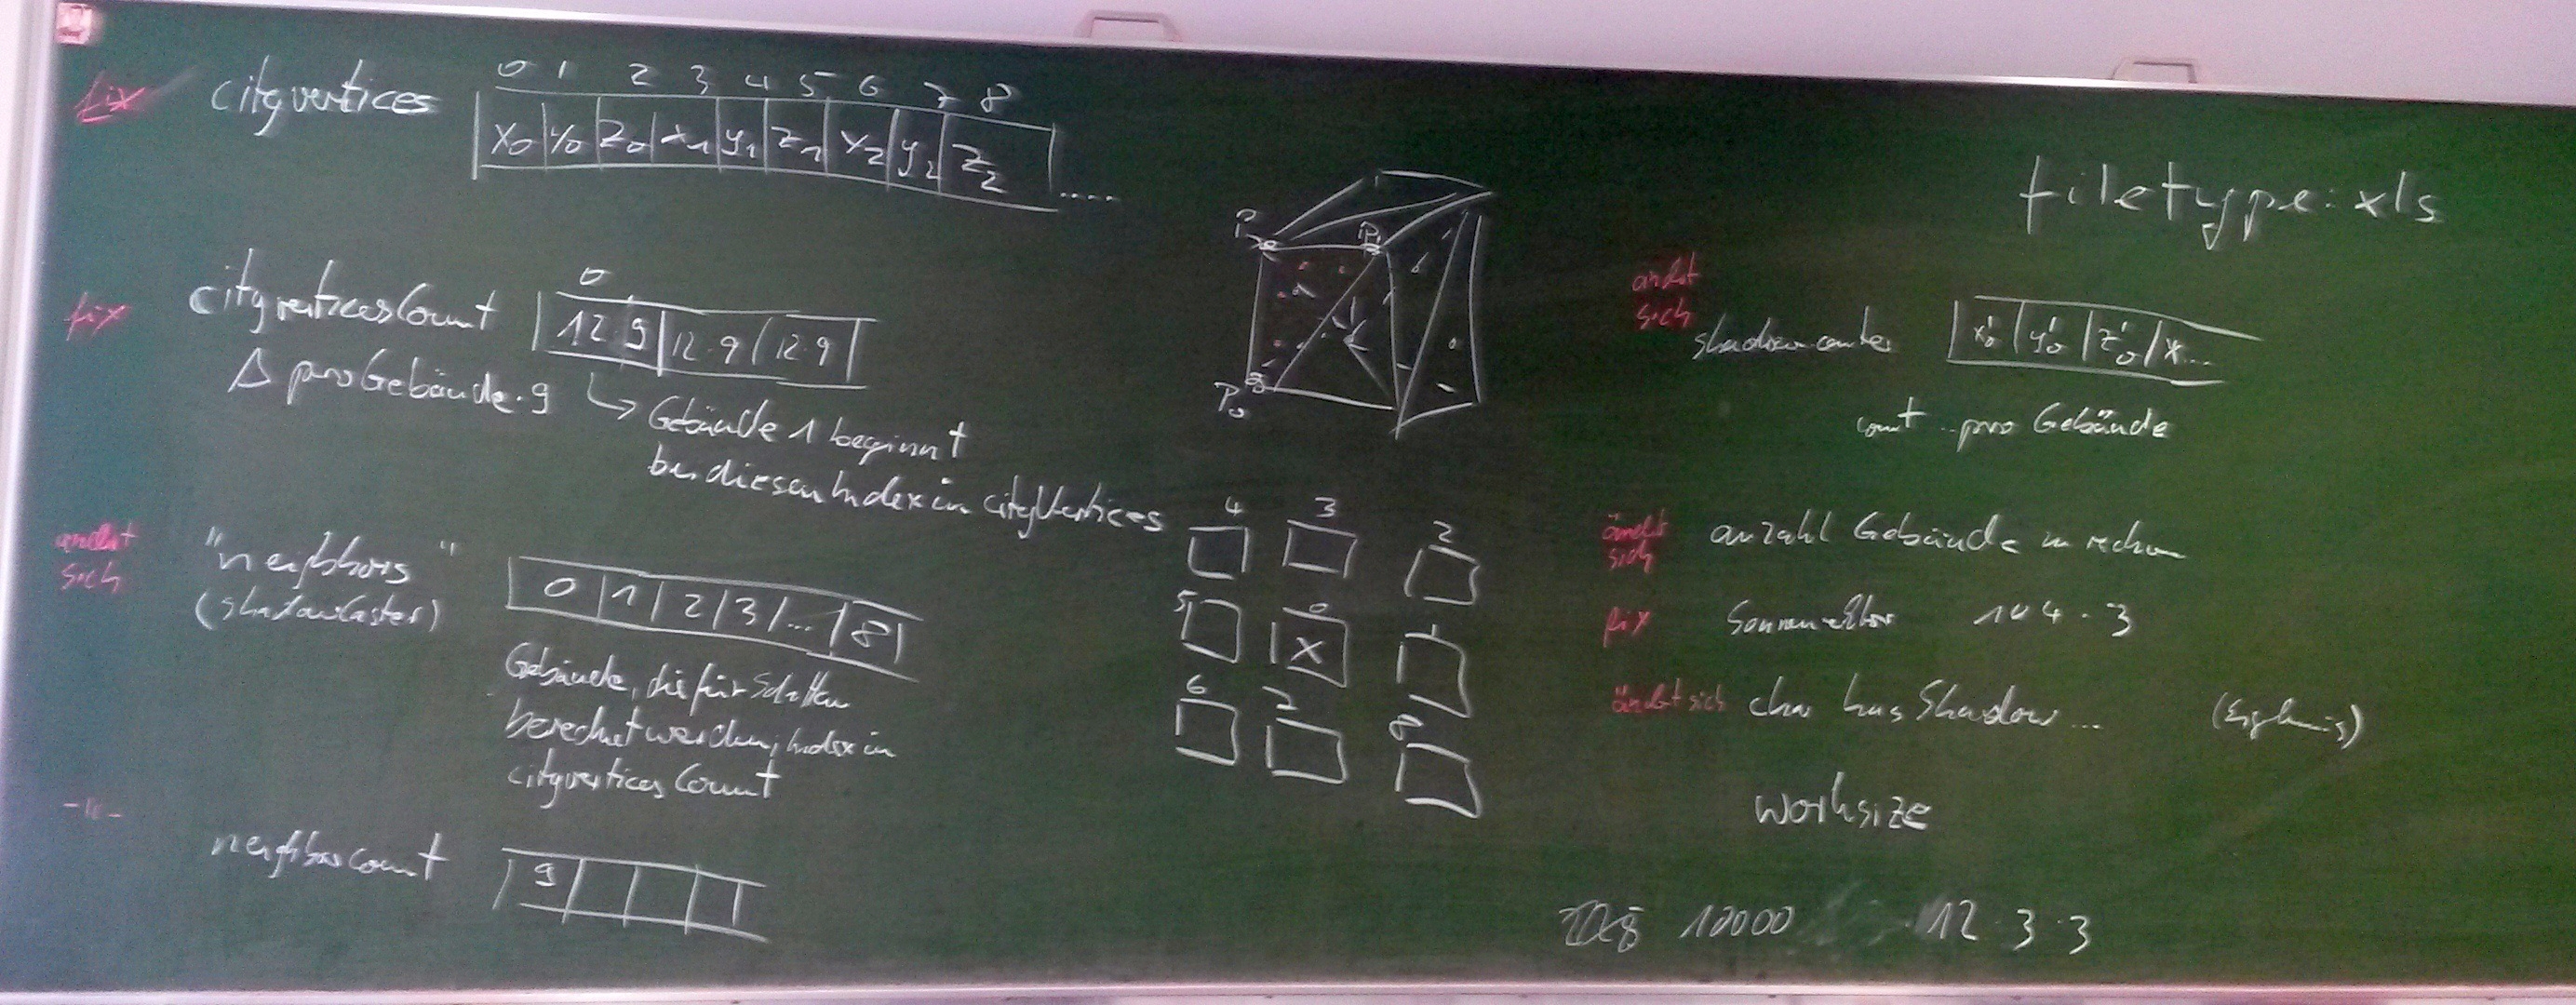 fix
cityvertices
0 1 2 3 4 5 6 7 8
x0 y0 z0 x1 y1 z1 x2 y2 z2 .....
fix
cityverticesCount
0
12·9 12·9 12·9
Δ pro Gebäude·9
↳ Gebäude 1 beginnt
bei diesem Index in cityVertices
ändert
sich
"neighbors"
(shadowCaster)
0 1 2 3 ... 8
Gebäude, die für Schatten
berechnet werden, Index in
cityvertices Count
-"-
neighborcount
9
P2 P1
P0
4 3 2
5 0 1
X
6 8
filetype:xls
ändert
sich
x0' y0' z0' x...
count .. pro Gebäude
ändert
sich
anzahl Gebäude
fix
Sonnenvektor 104·3
ändert sich
char hasShadow...
(Ergebnis)
worksize
10000 12·3·3